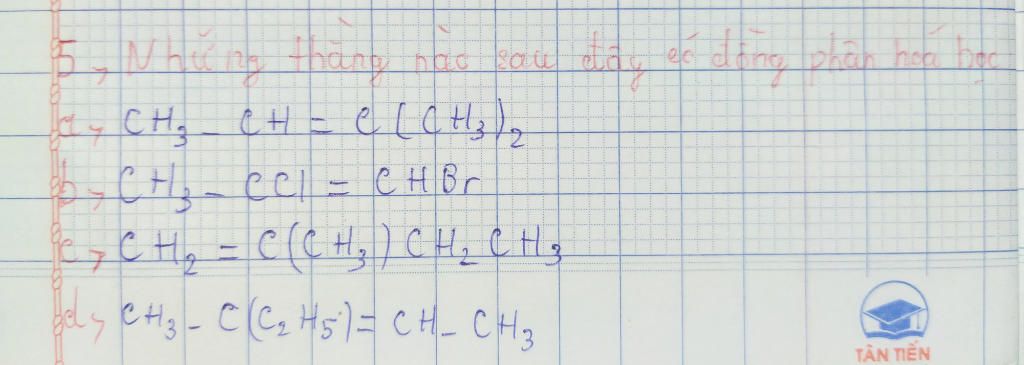 5, Những thằng nào sau đây có đồng phân hoá học
a, CH3 - CH = C(CH3)2
b, CH3 - CCl = CHBr
c, CH2 = C(CH3)CH2CH3
d, CH3 - C(C2H5) = CH - CH3
TÂN TIẾN